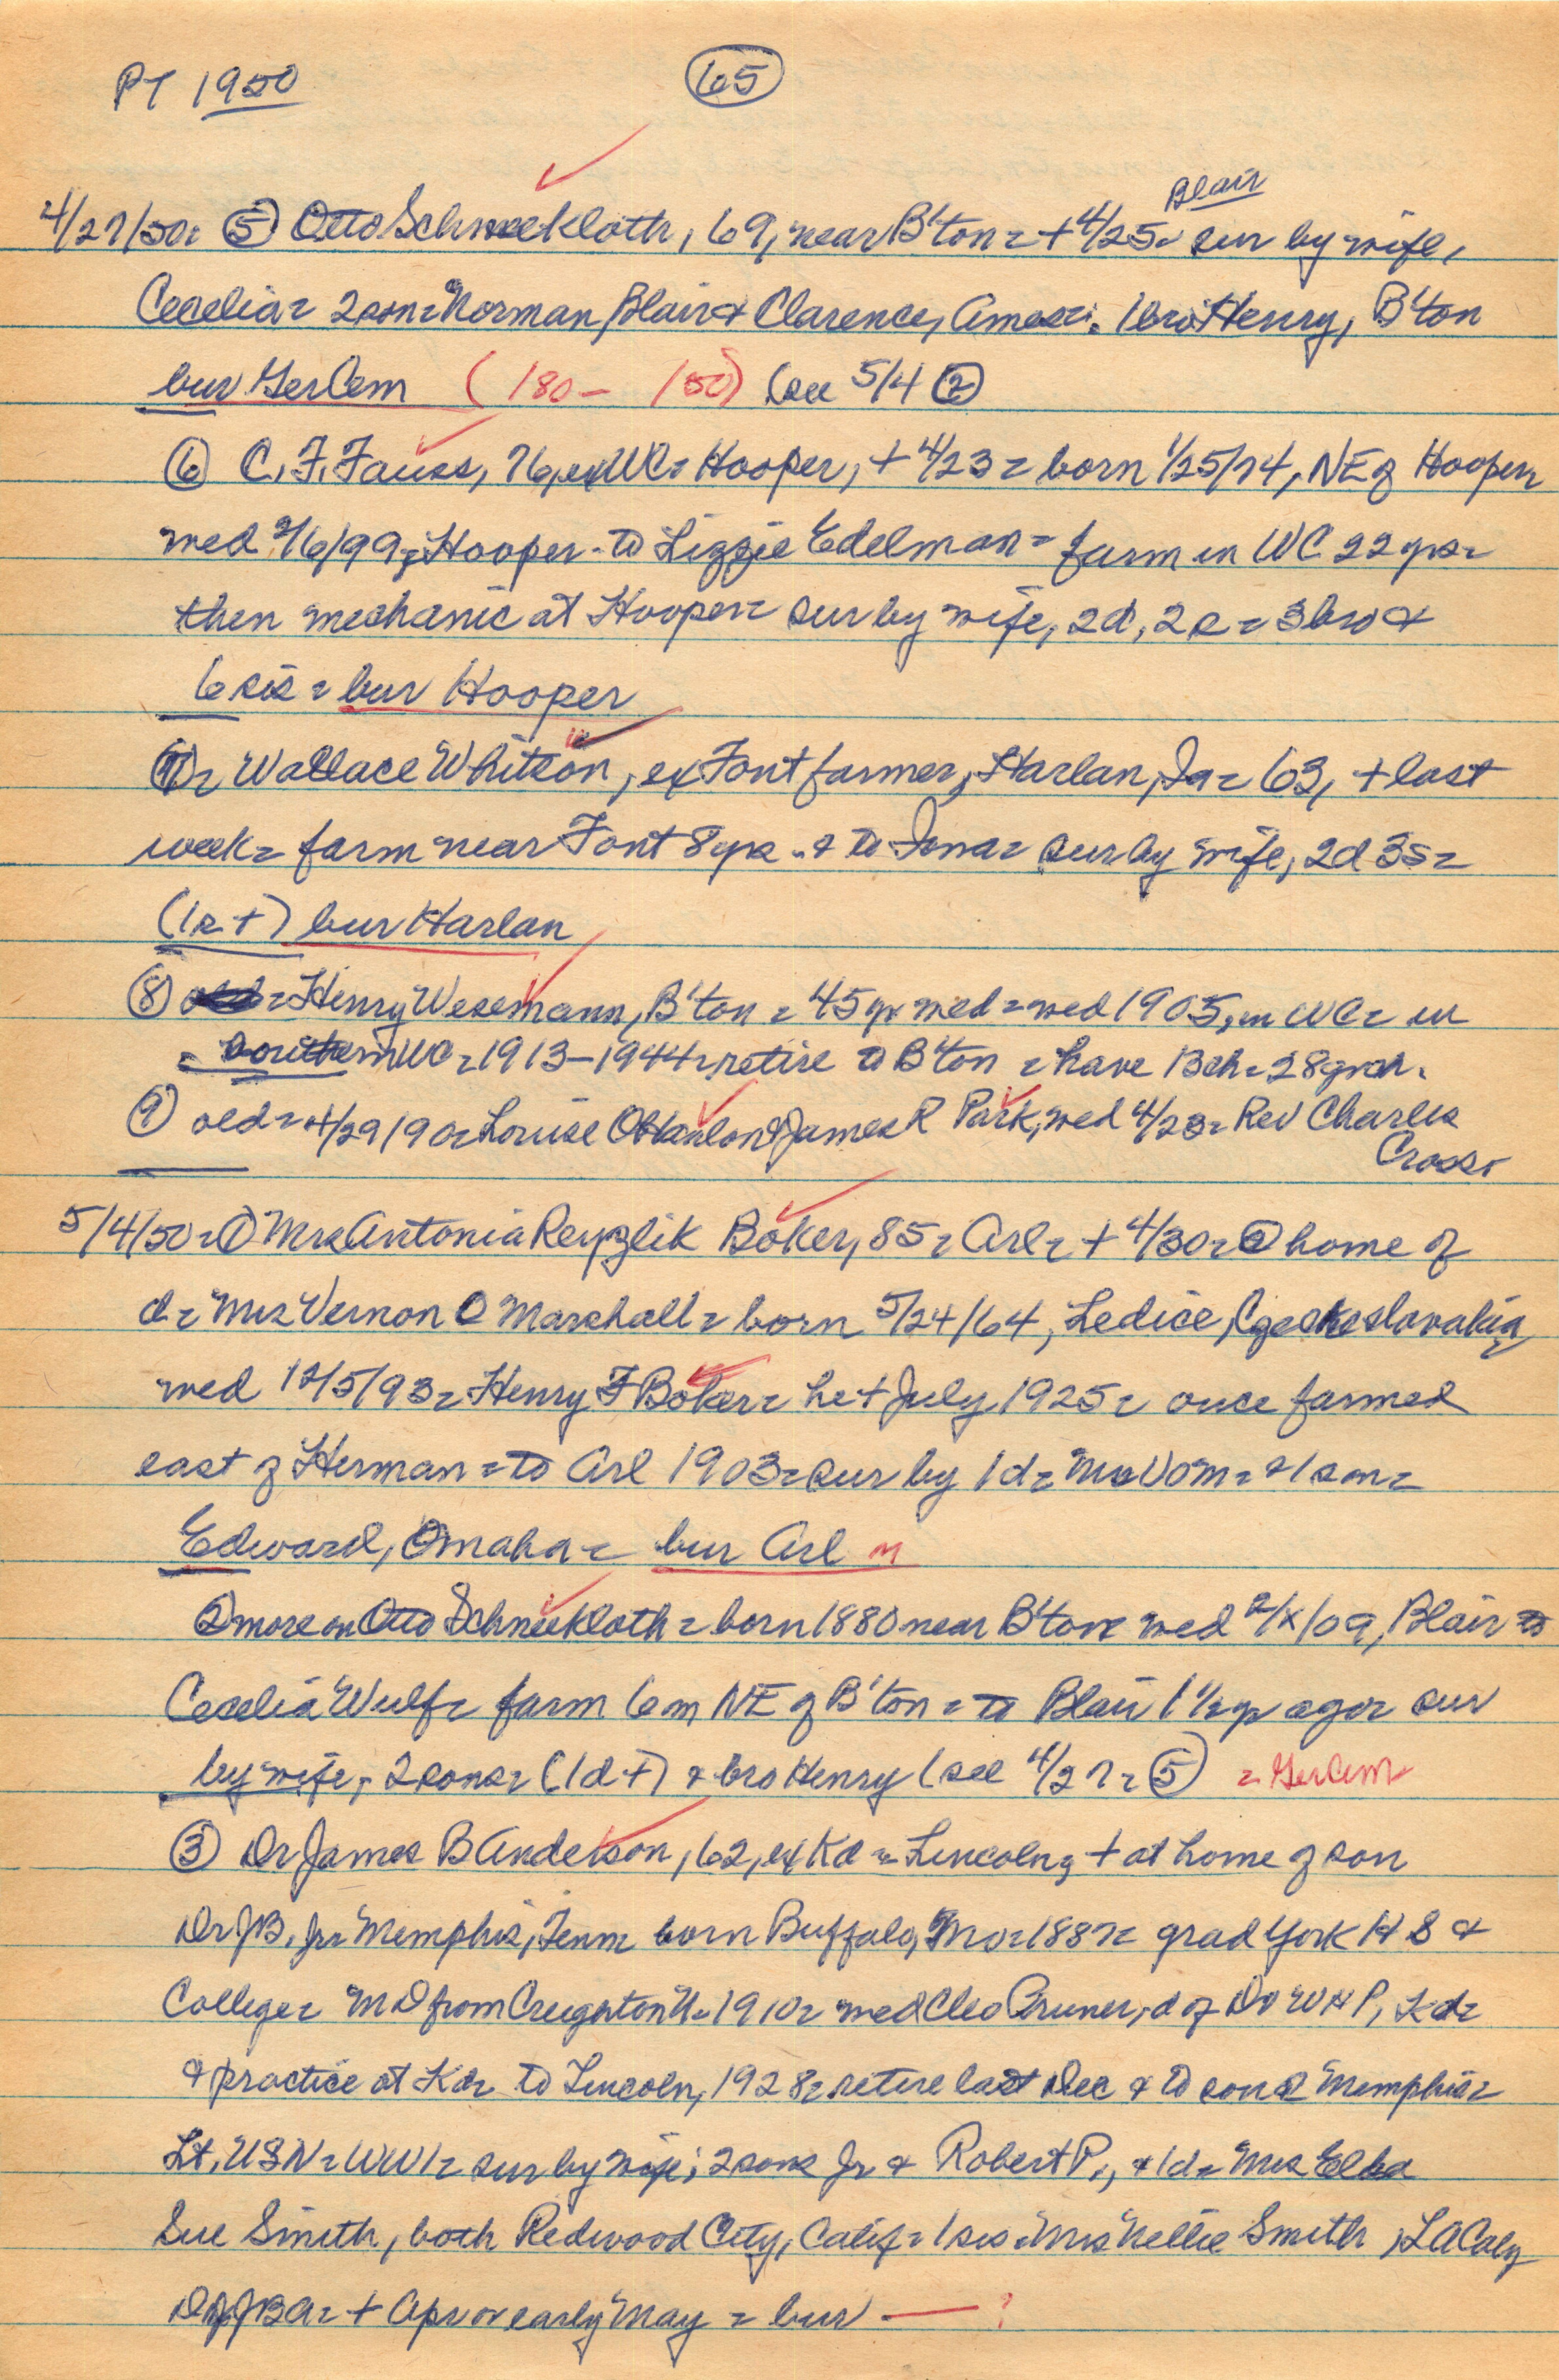 PT 1950
65
Blair
4/27/50= (5) Otto Schneekloth, 69, near B'ton = + 4/25= sur by wife,
Cecelia= 2 son= Norman, Blair & Clarence, Ames= 1 bro Henry, B'ton
bur Ger Cem (180- 150) (see 5/4 (2)
(6) C.F. Fauss, 76, ex WC= Hooper, + 4/23 = born 1/25/74, NE of Hooper=
wed 2/6/99, Hooper - to Lizzie Edelman = farm in WC 22 yrs=
then mechanic at Hooper= sur by wife, 2d, 2s = 3 bro &
6 sis = bur Hooper
(7)= Wallace Whitson, ex Font farmer, Harlan, Ia= 63, + last
week= farm near Font 8 yrs - & to Iowa= sur by wife, 2d 3s=
(1s +) bur Harlan
(8) = Henry Wesemann, B'ton = 45 yr wed = wed 1905, in WC= in
= southern WC= 1913-1944= retire to B'ton = have 13 ch= 28 grch.
(9) old= 4/29/90= Louise O'Hanlon & James R Park, wed 4/23= Rev Charles
Cross=
5/4/50= (1) Mrs Antonia Reyzlik Boker, 85= Arl= + 4/30= @ home of
d= Mrs Vernon O Marshall= born 5/24/64, Ledice, Czechoslovakia,
wed 12/5/93= Henry F Boker= he + July 1925= once farmed
east of Herman = to Arl 1903= sur by 1d= Mrs VOM= & 1 son=
Edward, Omaha = bur Arl
(2) more on Otto Schneekloth = born 1880 near B'ton= wed 2/x/09, Blair to
Cecelia Wulf= farm 6m NE of B'ton = to Blair 1 1/2 yr ago= sur
by wife, 2 sons= (1d +) & bro Henry (see 4/27= (5) = Ger Cem
(3) Dr James B Anderson, 62, ex Kd = Lincoln, + at home of son
Dr JB, Jr= Memphis, Tenn= born Buffalo, Mo= 1887= grad York HS &
College= MD from Creighton U= 1910= wed Cleo Pruner, d of Dr WHP, Kd=
& practice at Kd= to Lincoln, 1928= retire last Dec & to son @ Memphis=
Lt, USN= WW1= sur by wife; 2 sons Jr & Robert P., & 1d= Mrs
Sue Smith, both Redwood City, Calif= 1 sis= Mrs Nellie Smith, LA Caly
Dr JBA= + Apr or early May = bur — ?